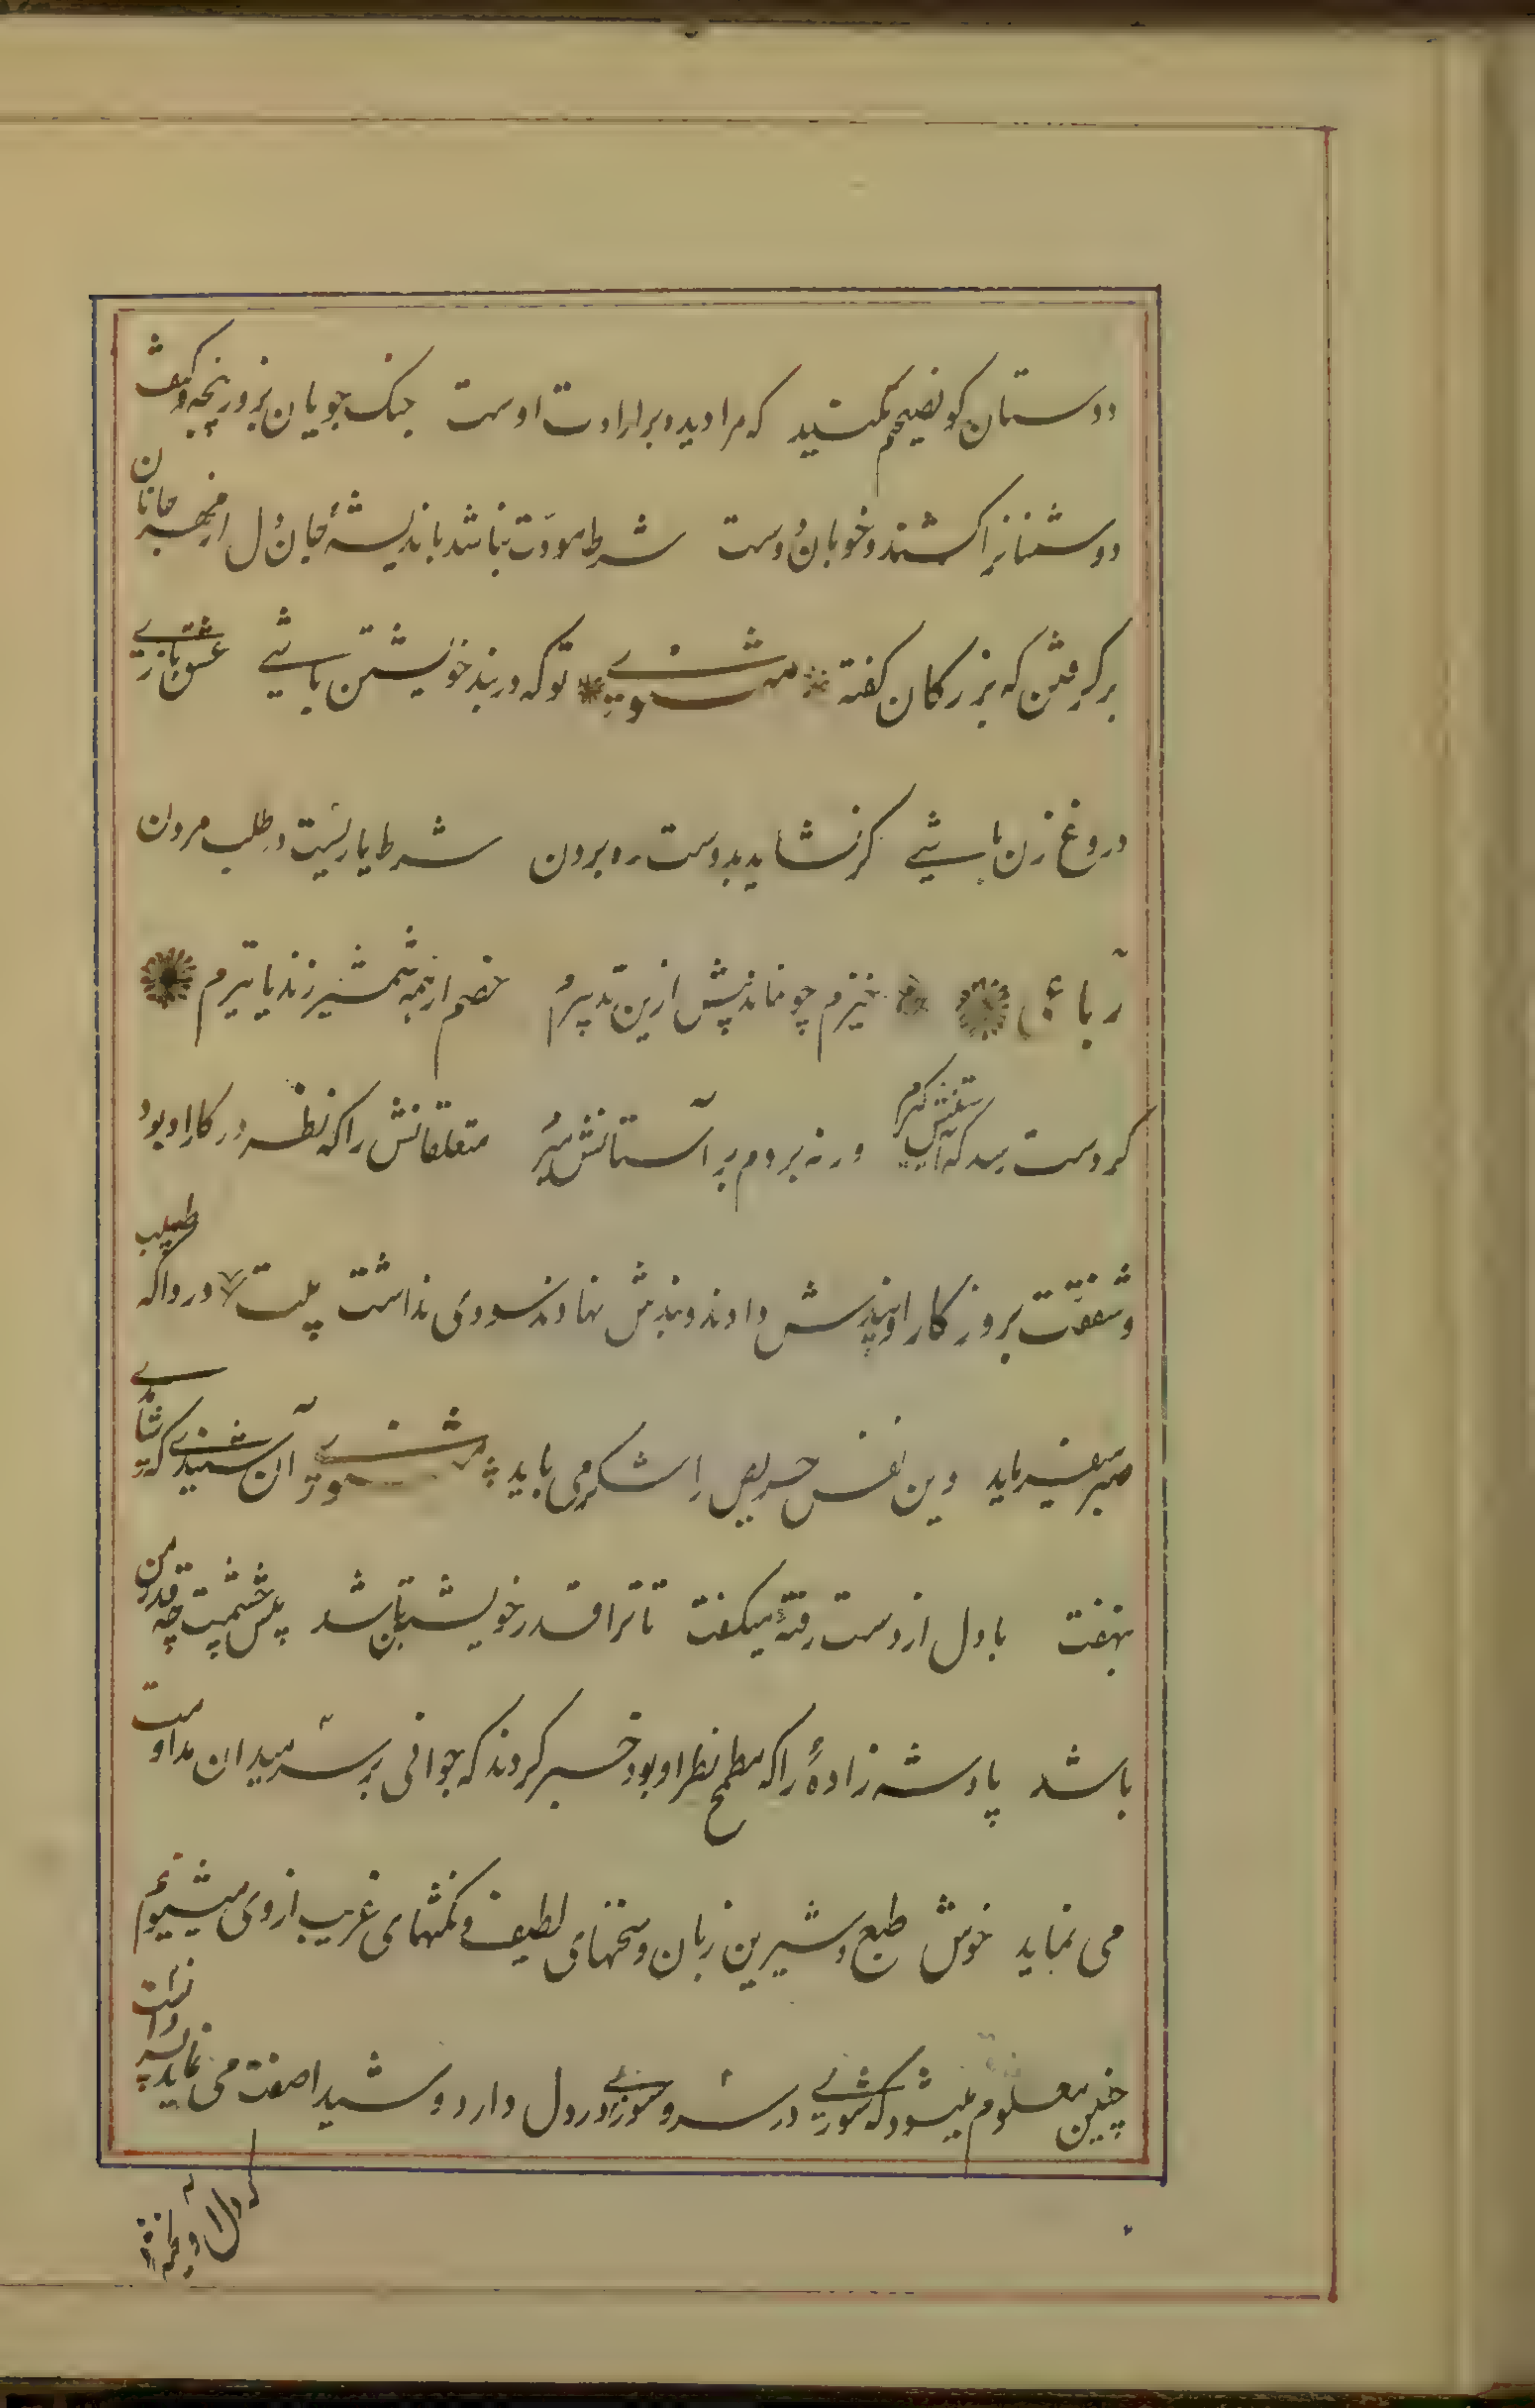 دوستان کو نصیحتم مکنید که مرا دیده بر ارادت اوست جنک جویان بزور پنجه و کتف
دوشمنانرا کشند و خوبان دوست شرط مودت نباشد باندیشهٔ جان دل از مهر جانان
برکرفتن که بزرکان کفته مثنوی تو که در بند خویشتن باشی عشق بازی
دروغ زن باشی کر نشاید بدوست ره بردن شرط یاریست در طلب مردن
رباعی خیزم چو نماند پیش ازین تدبیرم خصم ار همه شمشیر زند یا تیرم
کر دست رسد که آستینش کیرم ورنه بروم بر آستانش میرم متعلقانش را که نظر در کار او بود
و شفقت بروزکار او پندش دادند و بندش نهادند سودی نداشت بیت دردا که طبیب
صبر میفرماید وین نفس حریص را شکر می باید مثنوی آن شنیدی که شاهدی
بنهفت با دل از دست رفتهٔ میکفت تا ترا قدر خویشتن باشد پیش چشمت چه قدر من
باشد پادشه زادهٔ را که مطمح نظر او بود خبر کردند که جوانی بر سر میدان مداومت
می نماید خوش طبع و شیرین زبان و سخنهای لطیف و نکتهای غریب از وی میشنویم
چنین معلوم میشود که شوری در سر و سوزی در دل دارد و شیدا صفت می نماید پسر دانست
که دل آویخته